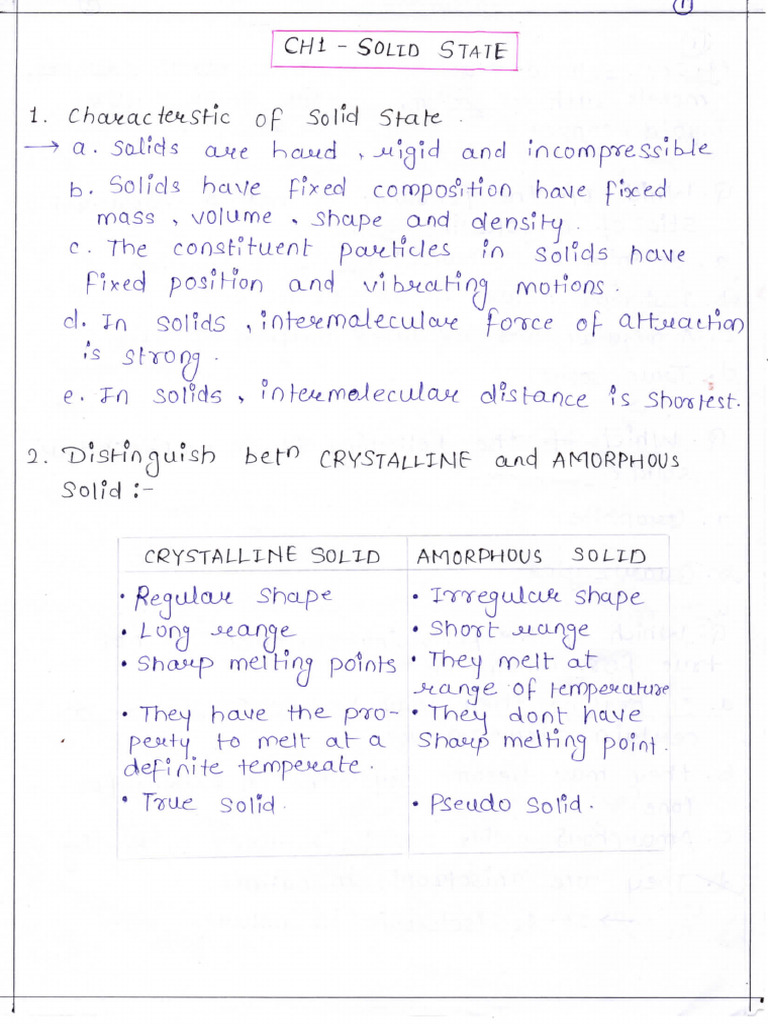 1
CH1 - SOLID STATE
1. Characterstic of Solid State.
→ a. Solids are hard, rigid and incompressible
b. Solids have fixed composition have fixed
mass, volume, shape and density.
c. The constituent particles in solids have
fixed position and vibrating motions.
d. In solids, intermolecular force of attraction
is strong.
e. In solids, intermolecular distance is shortest.
2. Distinguish betn CRYSTALLINE and AMORPHOUS
Solid :-
CRYSTALLINE SOLID
• Regular Shape
• Long range
• Sharp melting points
• They have the pro-
perty to melt at a
definite temperate.
• True solid.
AMORPHOUS SOLID
• Irregular shape
• Short range
• They melt at
range of temperature
• They dont have
Sharp melting point.
• Pseudo solid.